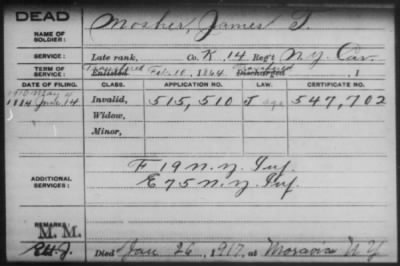 DEAD
NAME OF SOLDIER: Mosher, James T.
SERVICE: Late rank, Co. K, 14 Reg't N.Y. Cav.
TERM OF SERVICE: Enlisted Feb. 10, 1864 Discharged , 1
DATE OF FILING. CLASS. APPLICATION NO. LAW. CERTIFICATE NO.
1884 June 14. Invalid, 515,510 J 547,702
Widow,
Minor,
ADDITIONAL SERVICES: F 19 N.Y. Inf.
E 75 N.Y. Inf.
REMARKS:
M. M.
Died Jan 26, 1917, at Moravia N Y